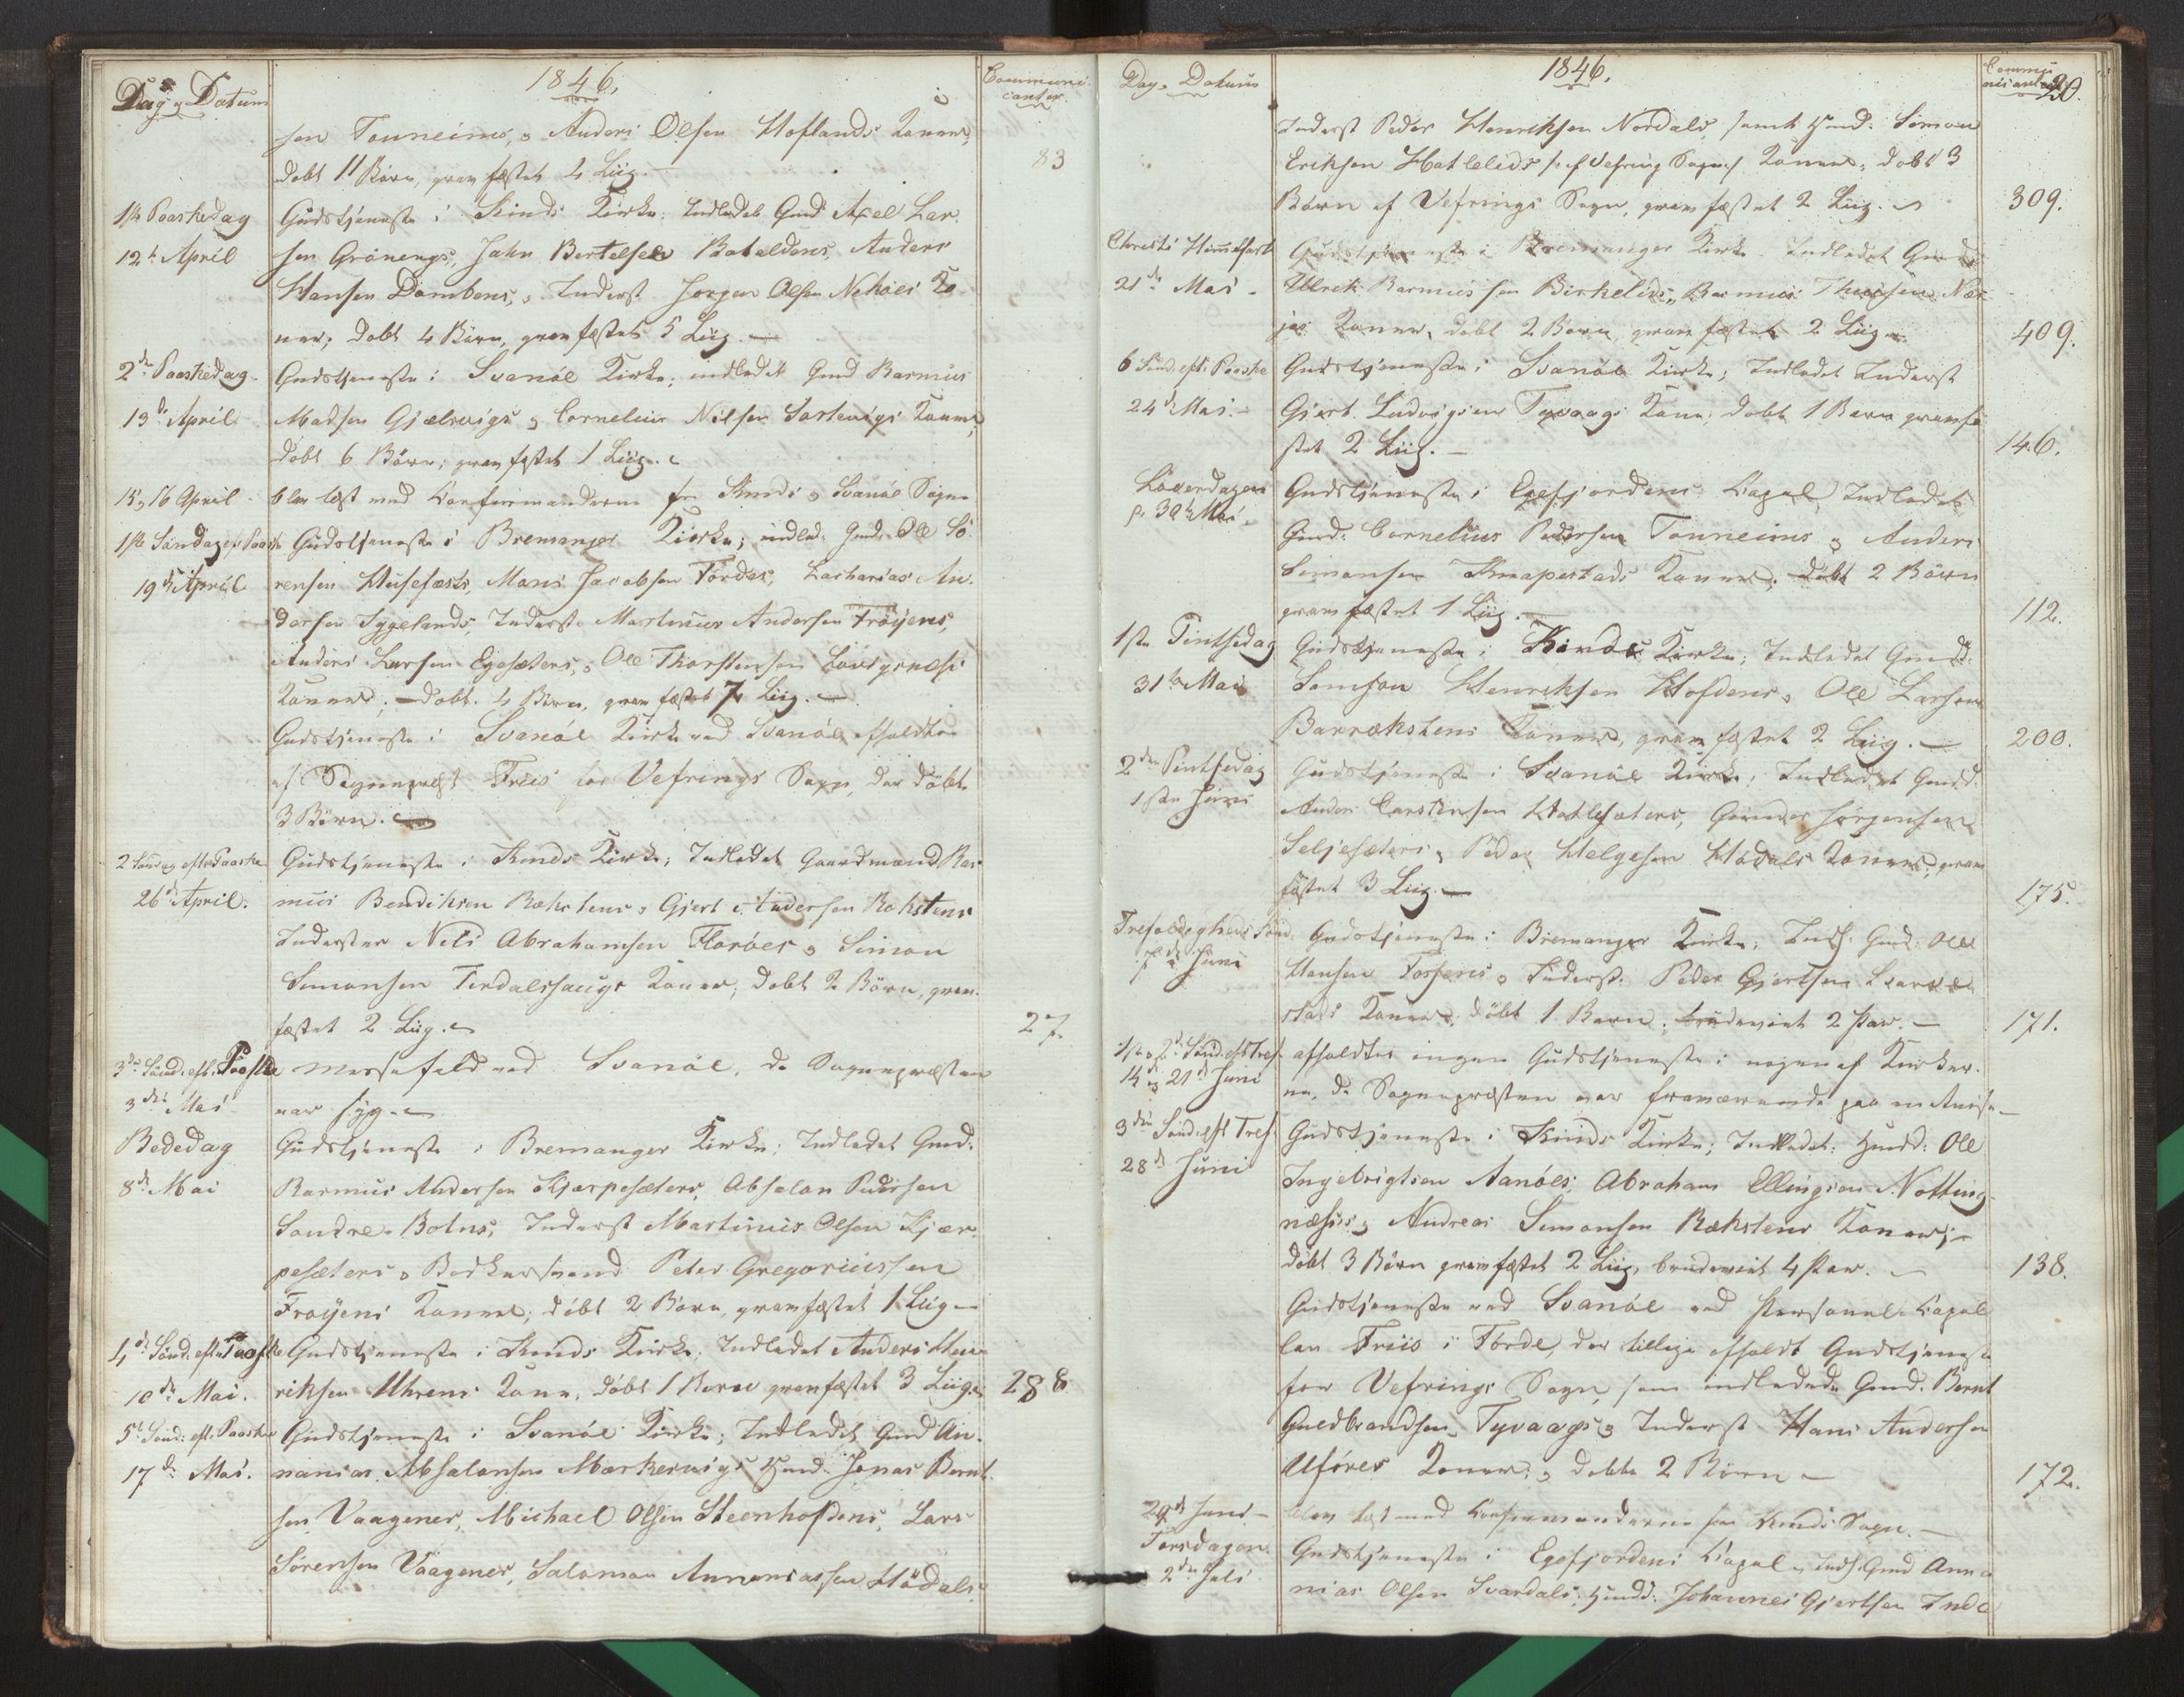 Dag og Datum
1846.
Communi-
canter.
sen Tonneims, og Anders Olsen Hoflands Koner,
døbt 11 Børn, græsfæstet 4 Liig.
83
1ste Paaskedag
Gudstjeneste i Kinds Kirke. Indledet Gmd Axel Lar-
12te April
sen Grönengs, John Bertelsen Bataldens, Anders
Hansen Dombens, og Inderst Jørgen Olsen Nekøes Ko-
ner; døbt 4 Børn, græsfæstet 5 Liig.
2den Paaskedag
Gudstjeneste i Svanöe Kirke; indledet Gmd Rasmus
13de April
Madsen Gjælsvigs og Cornelius Nilsen Sortevigs Koner,
døbt 6 Børn; græsfæstet 1 Liig.
15 og 16 April
blev læst med Confirmanderne fra Kinds og Svanöe Sogne
1ste Søndag e. Paaske
Gudstjeneste i Bremanger Kirke; indled. Gmd. Ole Sö-
19de April
rensen Husefæsts, Mons Jacobsen Førdes, Zacharias An-
dersen Iggelands, Inderst Martinus Andersen Fröyens,
Anders Larsen Egesæters, og Ole Thorstensen
Koner; døbt 4 Børn, græsfæstet 7 Liig.
Gudstjeneste i Svanöe Kirke ved Svanöe afholdtes
af Sognepræst Friis for Vefrings Sogn, der döbte
3 Børn.
2 Søndag efter Paaske
Gudstjeneste i Kinds Kirke; Indledet Gaardmand Ras-
26de April.
mus Bendiksen Rækstens og Gjert Andersen Rokstens
Inderster Nels Abrahamsen Floröes og Simon
Simonsen Terdalshaugs Koner; døbt 2 Børn, græs-
fæstet 2 Liig.
27.
3die Sønd. eft. Paaske
Messefald ved Svanöe, da Sognepræsten
3die Mai
var syg.
Bededag
Gudstjeneste i Bremanger Kirke; Indledet Gmd.
8de Mai
Rasmus Andersen Kjærpesæters, Absalon Pedersen
Sondre-Botns, Inderst Martinus Olsen Kjær-
pesæters og Peter Gregoriussen
Froyens Koner; døbt 2 Børn, græsfæstet 1 Liig
4de Sønd. efter Paaske
Gudstjeneste i Kinds Kirke; Indledet Anders Hen-
10de Mai.
riksen Uhrens Kone, døbt 1 Barn græsfæstet 3 Liig.
288
5te Sønd. eft. Paaske
Gudstjeneste i Svanöe Kirke; Indledet Gmd An-
17de Mai.
nanias Absalonsen Markevigs Hmd. Jonas Bernt-
sen Vaagenes, Michael Olsen Steenhofdens, Lars
Sørensen Vaagenes, Salamon Annaniassen Hödals
Dag og Datum
1846.
Commu-
nicanter
20.
Inderst Peder Henriksen Nordals, samt Hmd. Simon
Eriksen Hatlelids (af Vefring Sogn) Koner; døbt 3
Børn af Vefrings Sogn, græsfæstet 2 Liig.
309.
Christi Himmelfart
Gudstjeneste i Bremanger Kirke. Indledet Gmd.
21de Mai
Ulrik Rasmussen Birkelids, Rasmus Thuesen
Koner, døbt 2 Børn græsfæstet 2 Liig.
409.
6 Sønd. eft. Paaske
Gudstjeneste i Svanöe Kirke; Indledet Inderst
24de Mai.
Gjert Ludvigsen Tyvaags Kone; døbt 1 Barn græsfæ-
stet 2 Liig.
146.
Løverdagen
Gudstjeneste i Egefjordens Capel, Indledet
d. 30te Mai
Gmd. Cornelius Pedersen Tonneims og Anders
Simonsen Knapestads Koner; døbt 2 Børn
græsfæstet 1 Liig.
112.
1ste Pintsedag
Gudstjeneste i Kinds Kirke; Indledet Gmdd.
31te Mai
Samson Henriksen Hofdens, Ole Larsen
Barrækstens Koner, græsfæstet 2 Liig.
200.
2den Pintsedag
Gudstjeneste i Svanöe Kirke; Indledet Gmdd.
1ste Juni
Anders Carstensen Hatlesæters, Jørgensen
Seljesæters, Peder Helgesen Hödals Koner, græs-
fæstet 3 Liig.
175.
Trefoldigheds Sønd.
Gudstjeneste i Bremanger Kirke. Indl. Gmd. Ole
7de Juni
Hansen Torsens og Inderst. Peder Gjertsen
stads Koner; döbt 1 Barn; brudeviet 2 Par.
171.
1ste og 2d Sønd. eft Tref.
afholdtes ingen Gudstjeneste i nogen af Kirker-
14 og 21de Juni
ne, da Sognepræsten var fraværende paa en Reise
3die Sønd. eft Tref.
Gudstjeneste i Kinds Kirke; Indledet: Hmdd. Ole
28de Juni
Ingebrigtsen Aanöes, Abraham Ellingsen Notting-
næsets og Andreas Simonsen Rækstens Koner;
døbt 3 Børn græsfæstet 2 Liig, brudeviet 4 Par.
138.
Gudstjeneste ved Svanöe ved Personel-Capel-
lan Friis i Förde, der tillige afholdt Gudstjeneste
for Vefrings Sogn, som indledede Gmd. Bernt
Guldbrandsen Tyvaags og Inderst Hans Andersen
Uførers Koner, og døbte 2 Børn
172.
29de Juni
blev læst med Confirmanderne fra Kinds Sogn.
Torsdagen
Gudstjeneste i Egefjordens Capel, Indl. Gmd Anna-
2den Juli
nias Olsen Svardals, Hmdd. Johannes Gjertsen Inde